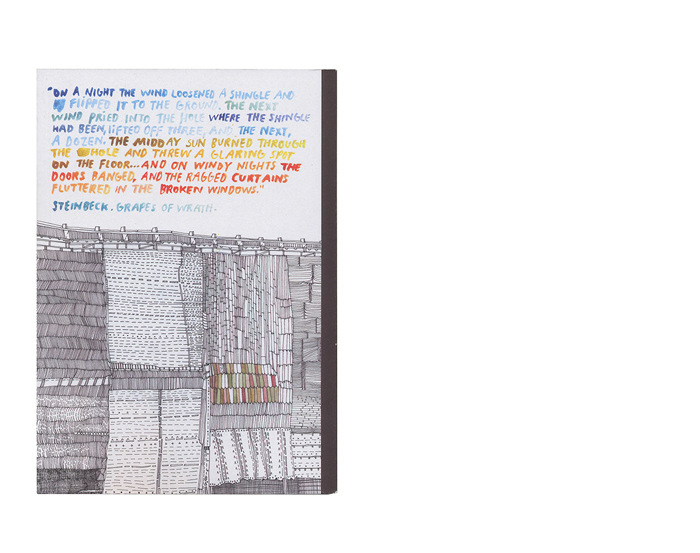 "ON A NIGHT THE WIND LOOSENED A SHINGLE AND
FLIPPED IT TO THE GROUND. THE NEXT
WIND PRIED INTO THE HOLE WHERE THE SHINGLE
HAD BEEN, LIFTED OFF THREE, AND THE NEXT,
A DOZEN. THE MIDDAY SUN BURNED THROUGH
THE HOLE AND THREW A GLARING SPOT
ON THE FLOOR...AND ON WINDY NIGHTS THE
DOORS BANGED, AND THE RAGGED CURTAINS
FLUTTERED IN THE BROKEN WINDOWS."
STEINBECK. GRAPES OF WRATH.